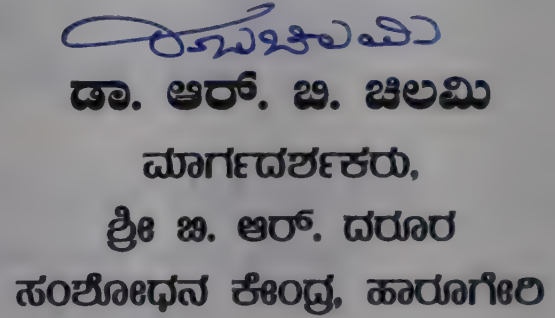 ಡಾ. ಆರ್. ಬಿ. ಚಿಲಮಿ
ಮಾರ್ಗದರ್ಶಕರು,
ಶ್ರೀ ಬಿ. ಆರ್. ದರೂರ
ಸಂಶೋಧನ ಕೇಂದ್ರ, ಹಾರೂಗೇರಿ